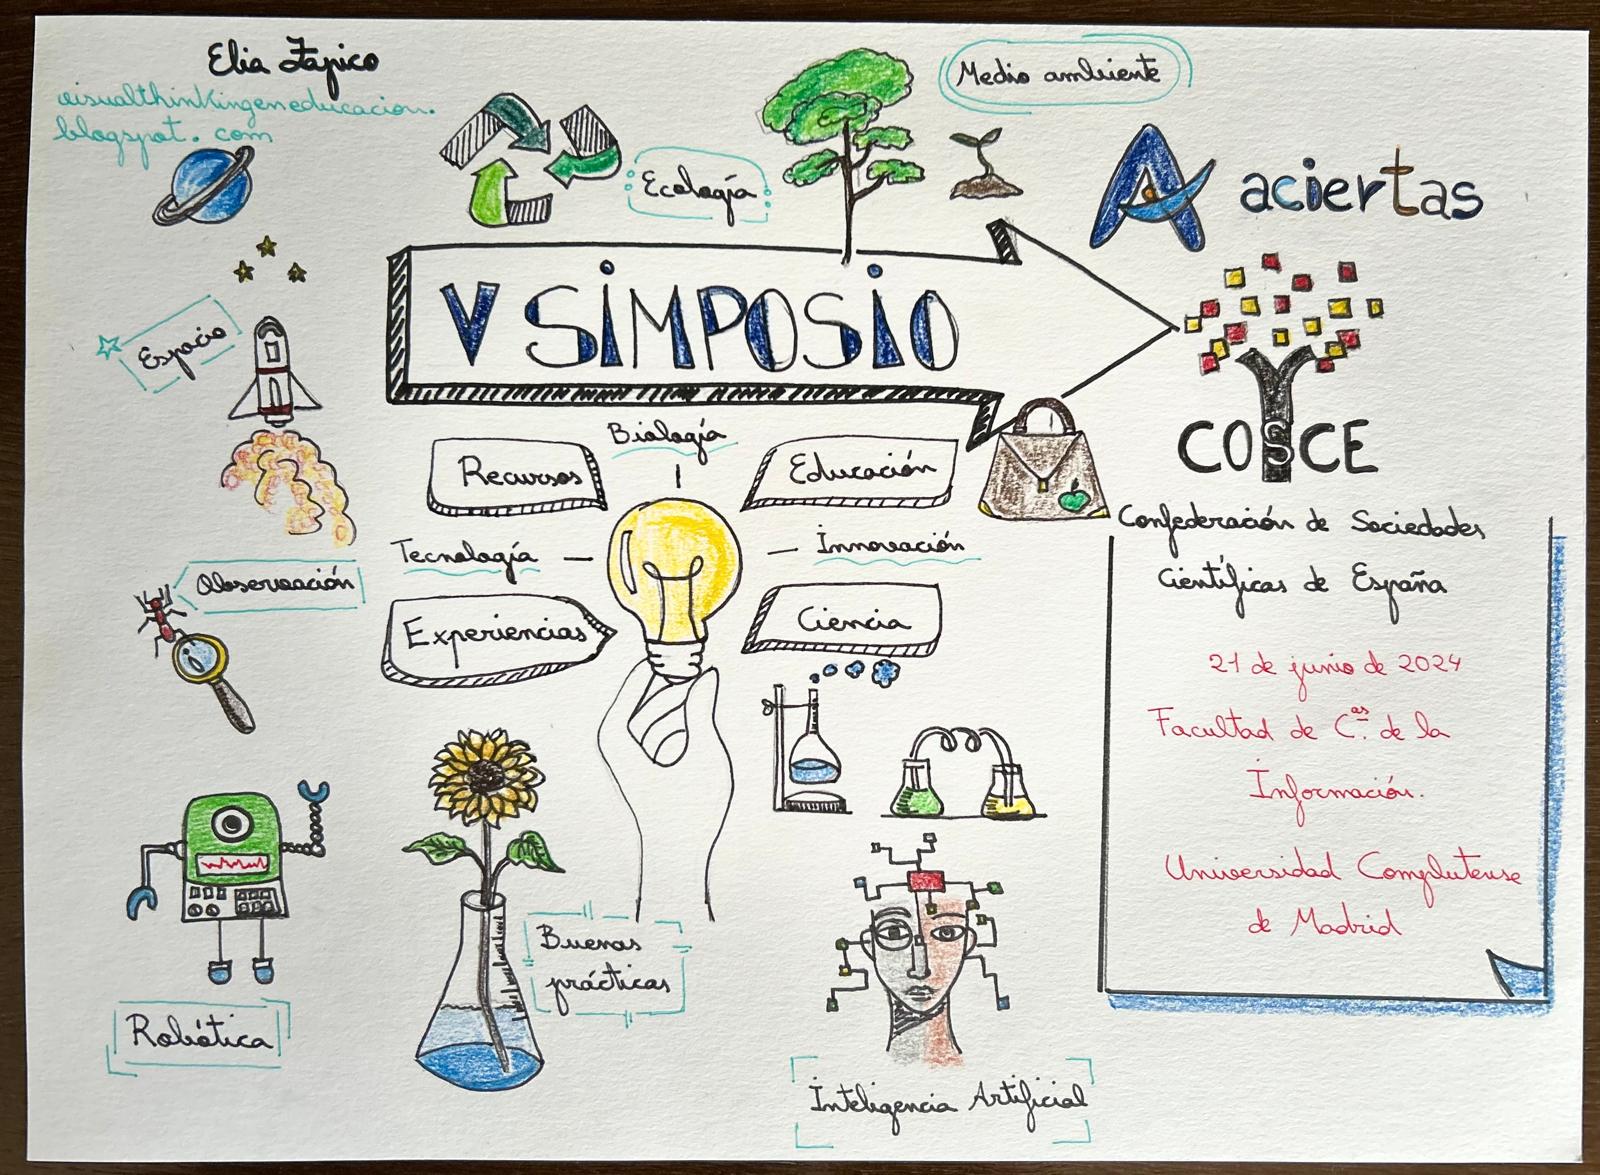 Elia Zapico
visualthinkingeneducacion.
blogspot.com
Medio ambiente
Ecología
A aciertas
V SIMPOSIO
Espacio
COSCE
Confederación de Sociedades
Científicas de España
Biología
Recursos
Educación
Tecnología
Innovación
Observación
Experiencias
Ciencia
21 de junio de 2024
Facultad de C.as de la
Información.
Universidad Complutense
de Madrid
Buenas
prácticas
Robótica
Inteligencia Artificial